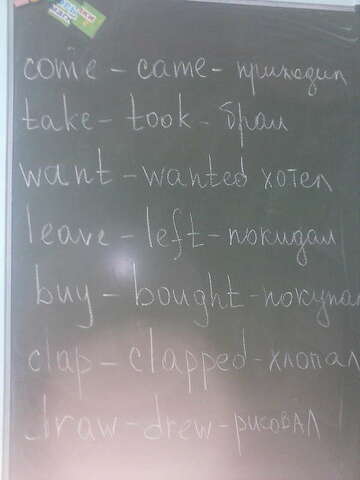 come - came - приходил
take - took - брал
want - wanted хотел
leave - left - покидал
buy - bought - покупал
clap - clapped - хлопал
draw - drew - рисовал